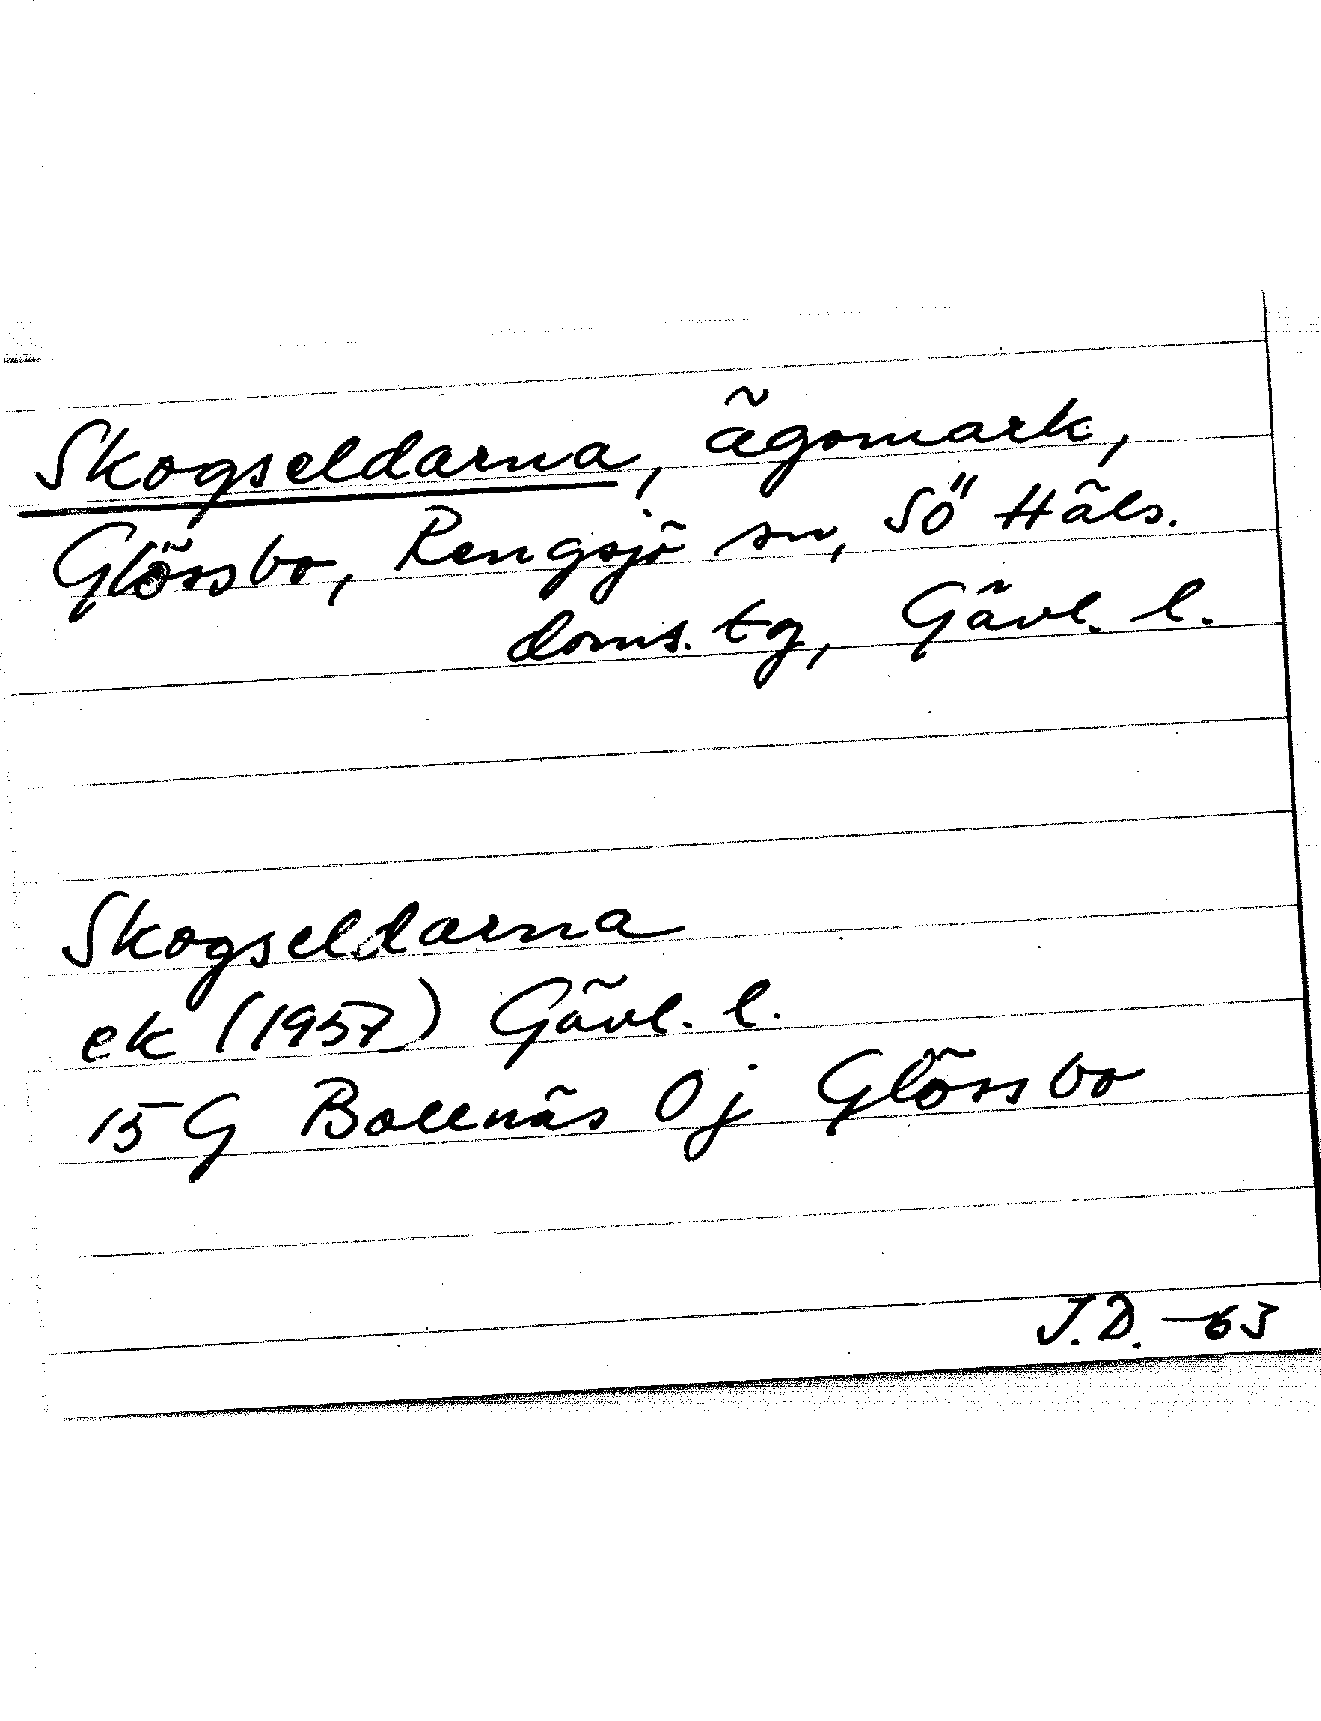 Skogseldarna, ägomark,
Glössbo, Rengsjö sn, Sö Häls.
doms. tg, Gävl. l.
Skogseldarna
ek (1957) Gävl. l.
15 G Bollnäs 0 j Glössbo
J.D. -63